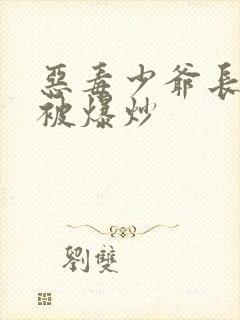 惡毒少爺長
被爆炒
劉雙